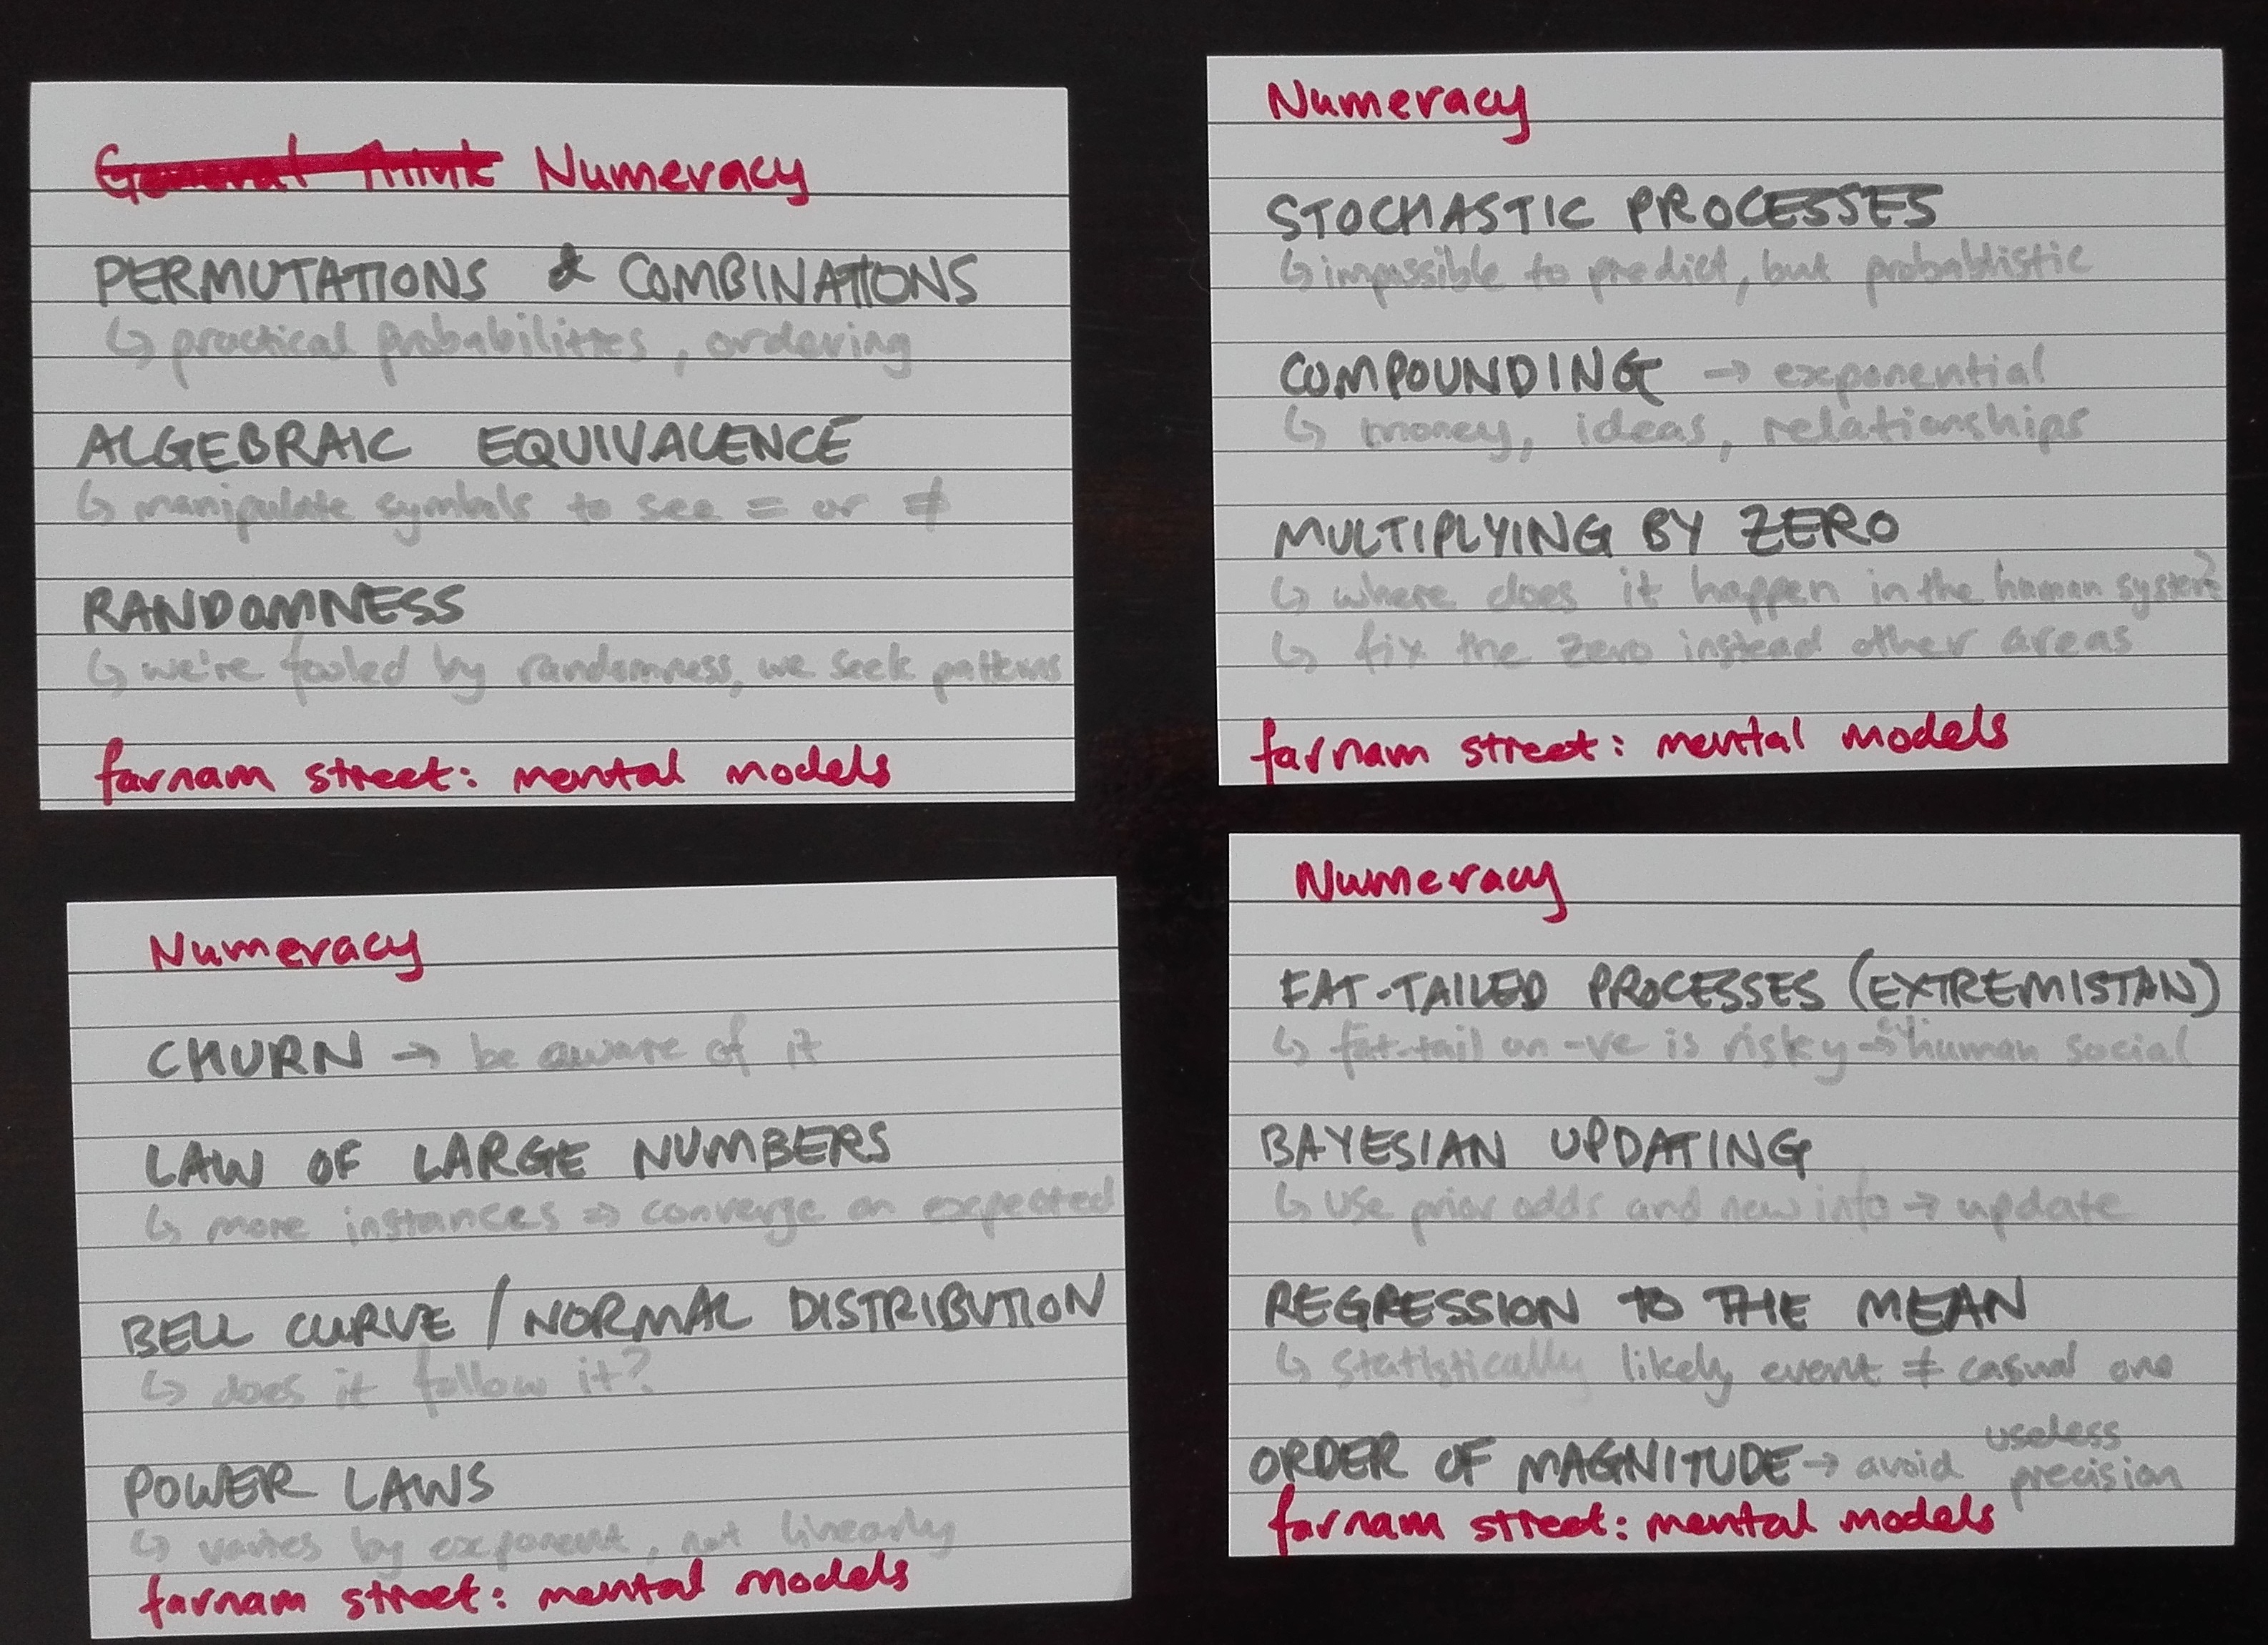 General Think Numeracy
PERMUTATIONS & COMBINATIONS
↳ practical probabilities, ordering
ALGEBRAIC EQUIVALENCE
↳ manipulate symbols to see = or ≠
RANDOMNESS
↳ we're fooled by randomness, we seek patterns
farnam street: mental models
Numeracy
STOCHASTIC PROCESSES
↳ impossible to predict, but probablistic
COMPOUNDING → exponential
↳ money, ideas, relationships
MULTIPLYING BY ZERO
↳ where does it happen in the human system?
↳ fix the zero instead other areas
farnam street: mental models
Numeracy
CHURN → be aware of it
LAW OF LARGE NUMBERS
↳ more instances ⇒ converge on expected
BELL CURVE / NORMAL DISTRIBUTION
↳ does it follow it?
POWER LAWS
↳ varies by exponent, not linearly
farnam street: mental models
Numeracy
FAT-TAILED PROCESSES (EXTREMISTAN)
↳ fat-tail on -ve is risky → human social
BAYESIAN UPDATING
↳ use prior odds and new info → update
REGRESSION TO THE MEAN
↳ statistically likely event ≠ casual one
ORDER OF MAGNITUDE → avoid useless
precision
farnam street: mental models